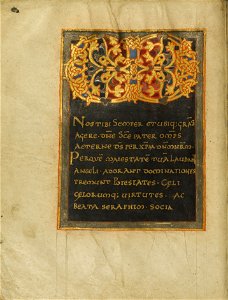 NOS TIBI SEMPER ET UBIQ; GRAS
AGERE. DNE SCE PATER OMPS
AETERNE DS PER XPM DNM NRM.
PER QUE MAIESTATE TUA LAUDAN
ANGELI. ADORANT DOMINATIONES
TREMUNT POTESTATES. CELI
CELORUMQ; VIRTUTES. AC
BEATA SERAPHIM. SOCIA